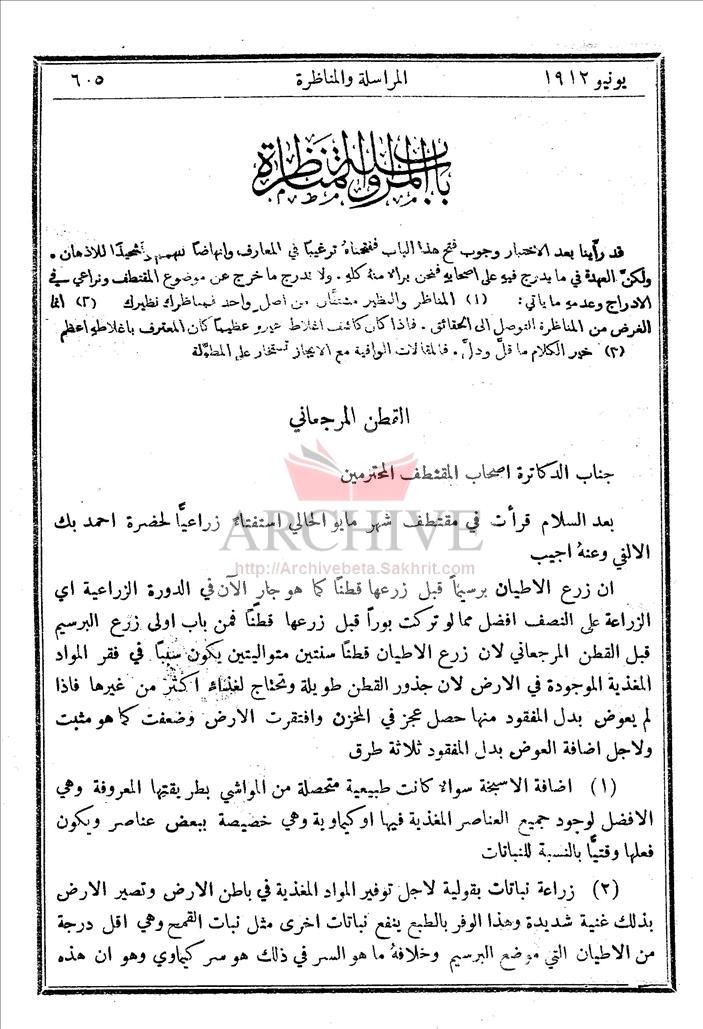 يونيو ١٩١٢
المراسلة والمناظرة
٦٠٥
باب المراسلة والمناظرة
قد رأينا بعد الاختبار وجوب فتح هذا الباب ففتحناهُ ترغيبًا في المعارف وانهاضًا للهمم وتشحيذًا للاذهان .
ولكنَّ العهدة في ما يدرج فيهِ على اصحابهِ فنحن براءٌ منهُ كلهِ . ولا ندرج ما خرج عن موضوع المقتطف ونراعي في
الادراج وعدمهِ ما يأتي: (١) المناظر والنظير مشتقَّان من اصل واحد فمناظرك نظيرك (٢) انما
الغرض من المناظرة التوصل الى الحقائق . فاذا كان كاشف اغلاط غيرهِ عظيمًا كان المعترف باغلاطهِ اعظم
(٣) خير الكلام ما قلَّ ودلَّ . فالمقالات الوافية مع الايجاز تستخار على المطوَّلة
القطن المرجعاني
جناب الدكاترة اصحاب المقتطف المحترمين
بعد السلام قرأت في مقتطف شهر مايو الحالي استفتاءً زراعيًّا لحضرة احمد بك
الالفي وعنهُ اجيب
ان زرع الاطيان برسيماً قبل زرعها قطنًا كما هو جارٍ الآن في الدورة الزراعية اي
الزراعة على النصف افضل مما لو تركت بوراً قبل زرعها قطنًا فمن باب اولى زرع البرسيم
قبل القطن المرجعاني لان زرع الاطيان قطنًا سنتين متواليتين يكون سببًا في فقر المواد
المغذية الموجودة في الارض لان جذور القطن طويلة وتحتاج لغذاء اكثر من غيرها فاذا
لم يعوض بدل المفقود منها حصل عجز في المخزن وافتقرت الارض وضعفت كما هو مثبت
ولاجل اضافة العوض بدل المفقود ثلاثة طرق
(١) اضافة الاسبخة سواءٌ كانت طبيعية متحصلة من المواشي بطريقتها المعروفة وهي
الافضل لوجود جميع العناصر المغذية فيها او كيماوية وهي خصيصة ببعض عناصر ويكون
فعلها وقتيًّا بالنسبة للنباتات
(٢) زراعة نباتات بقولية لاجل توفير المواد المغذية في باطن الارض وتصير الارض
بذلك غنية شديدة وهذا الوفر بالطبع ينفع نباتات اخرى مثل نبات القمح وهي اقل درجة
من الاطيان التي موضع البرسيم وخلافهُ ما هو السر في ذلك هو سر كيماوي وهو ان هذه
ARCHIVE
http://Archivebeta.Sakhrit.com